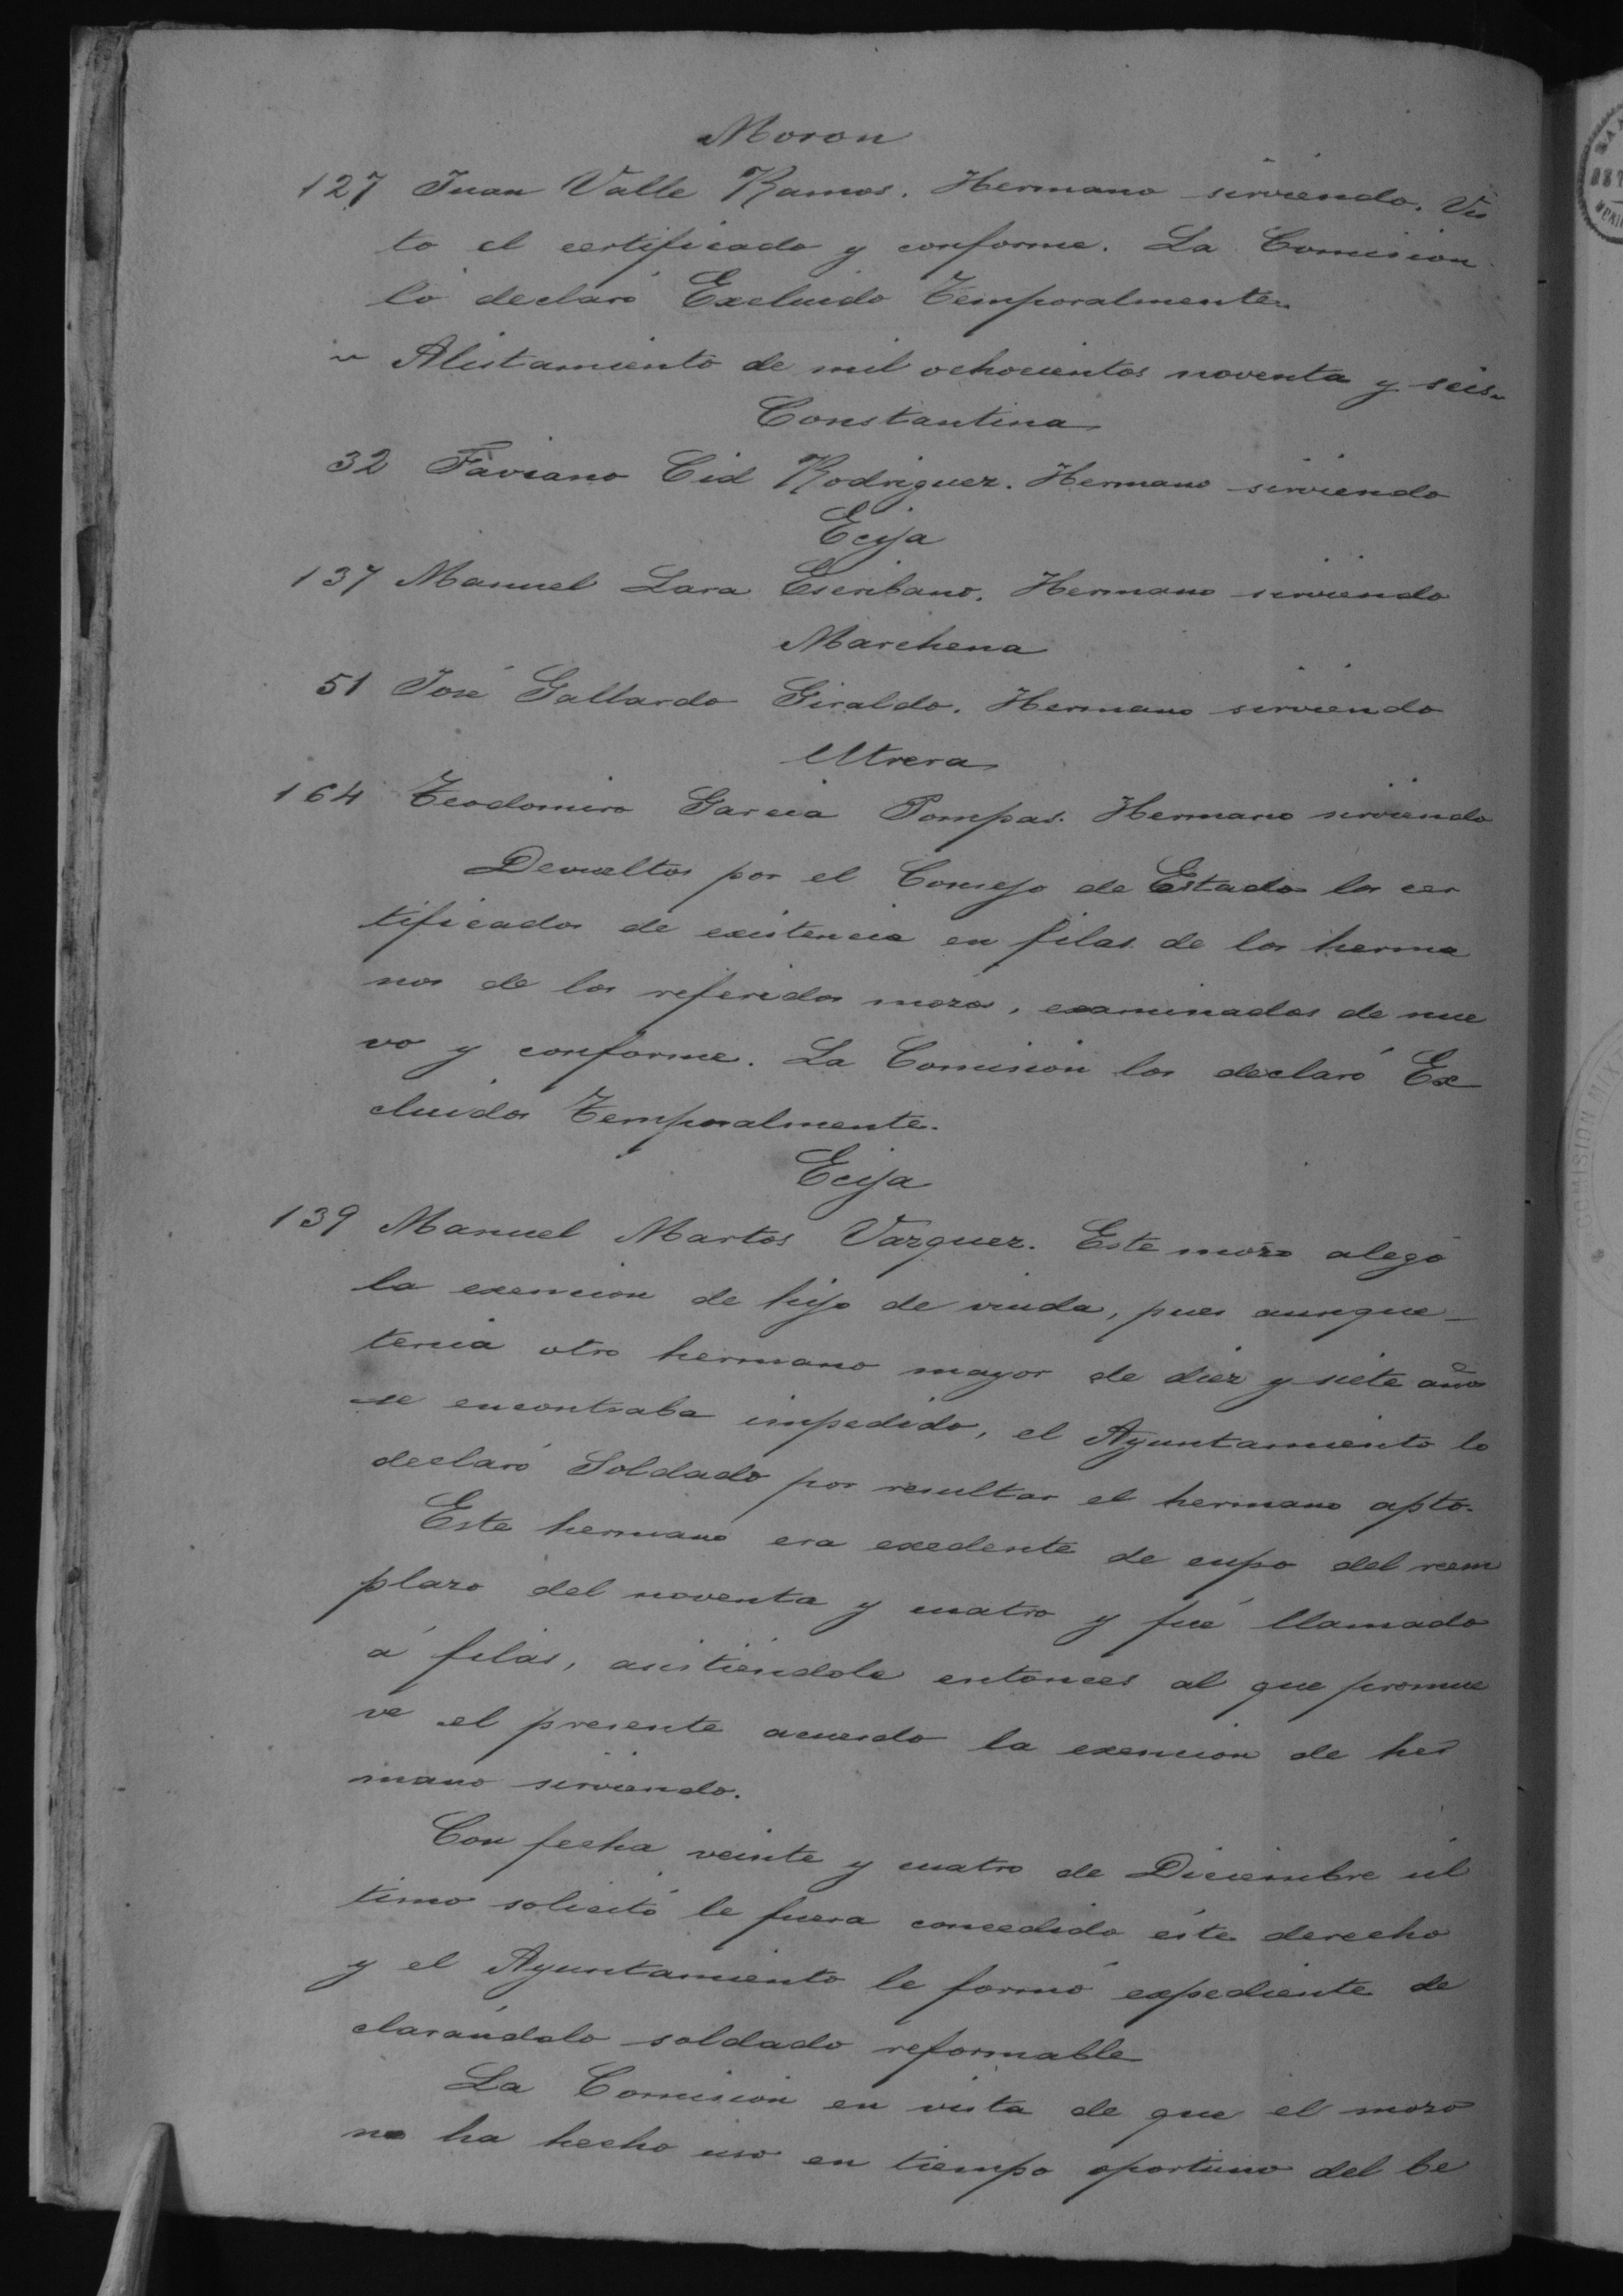 Moron
127 Juan Valle Ramos. Hermano sirviendo. Vis
to el certificado y conforme. La Comision
lo declaró Excluido Temporalmente.
Alistamiento de mil ochocientos noventa y seis.
Constantina
32 Faviano Cid Rodriguez. Hermano sirviendo
Ecija
137 Manuel Lara Escribano. Hermano sirviendo
Marchena
51 José Gallardo Giraldo. Hermano sirviendo
Utrera
164 Teodomiro Garcia Pompas. Hermano sirviendo
Devueltos por el Consejo de Estado los cer
tificados de existencia en filas de los herma
nos de los referidos mozos, examinados de nue
vo y conforme. La Comision los declaró Ex
cluidos Temporalmente.
Ecija
139 Manuel Martos Vazquez. Este mozo alegó
la exencion de hijo de viuda, pues aunque
tenia otro hermano mayor de diez y siete años
se encontraba impedido, el Ayuntamiento lo
declaró Soldado por resultar el hermano apto.
Este hermano era exedente de cupo del reem
plazo del noventa y cuatro y fué llamado
á filas, asistiéndole entonces al que promue
ve el presente acuerdo la exencion de her
mano sirviendo.
Con fecha veinte y cuatro de Diciembre úl
timo solicitó le fuera concedido este derecho
y el Ayuntamiento le formó expediente de
clarándolo soldado reformable
La Comision en vista de que el mozo
no ha hecho uso en tiempo oportuno del be
COMISION MIX